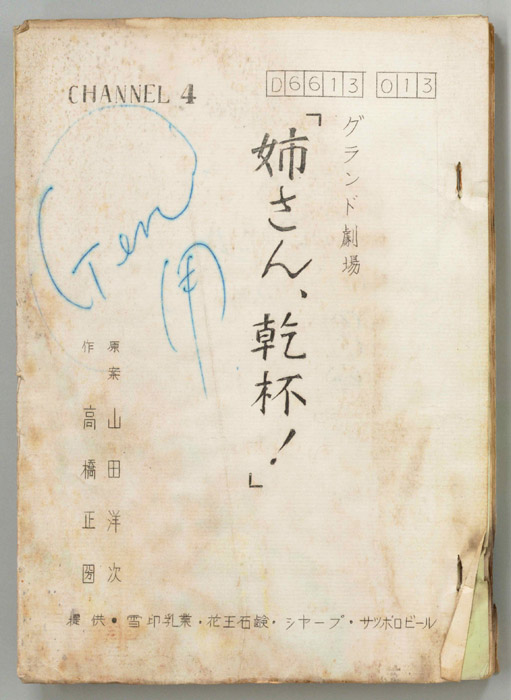 CHANNEL 4
D6613 013
グランド劇場
「姉さん、乾杯！」
Ten
用
原案 山田洋次
作 高橋正圀
提供・雪印乳業・花王石鹸・シャープ・サッポロビール